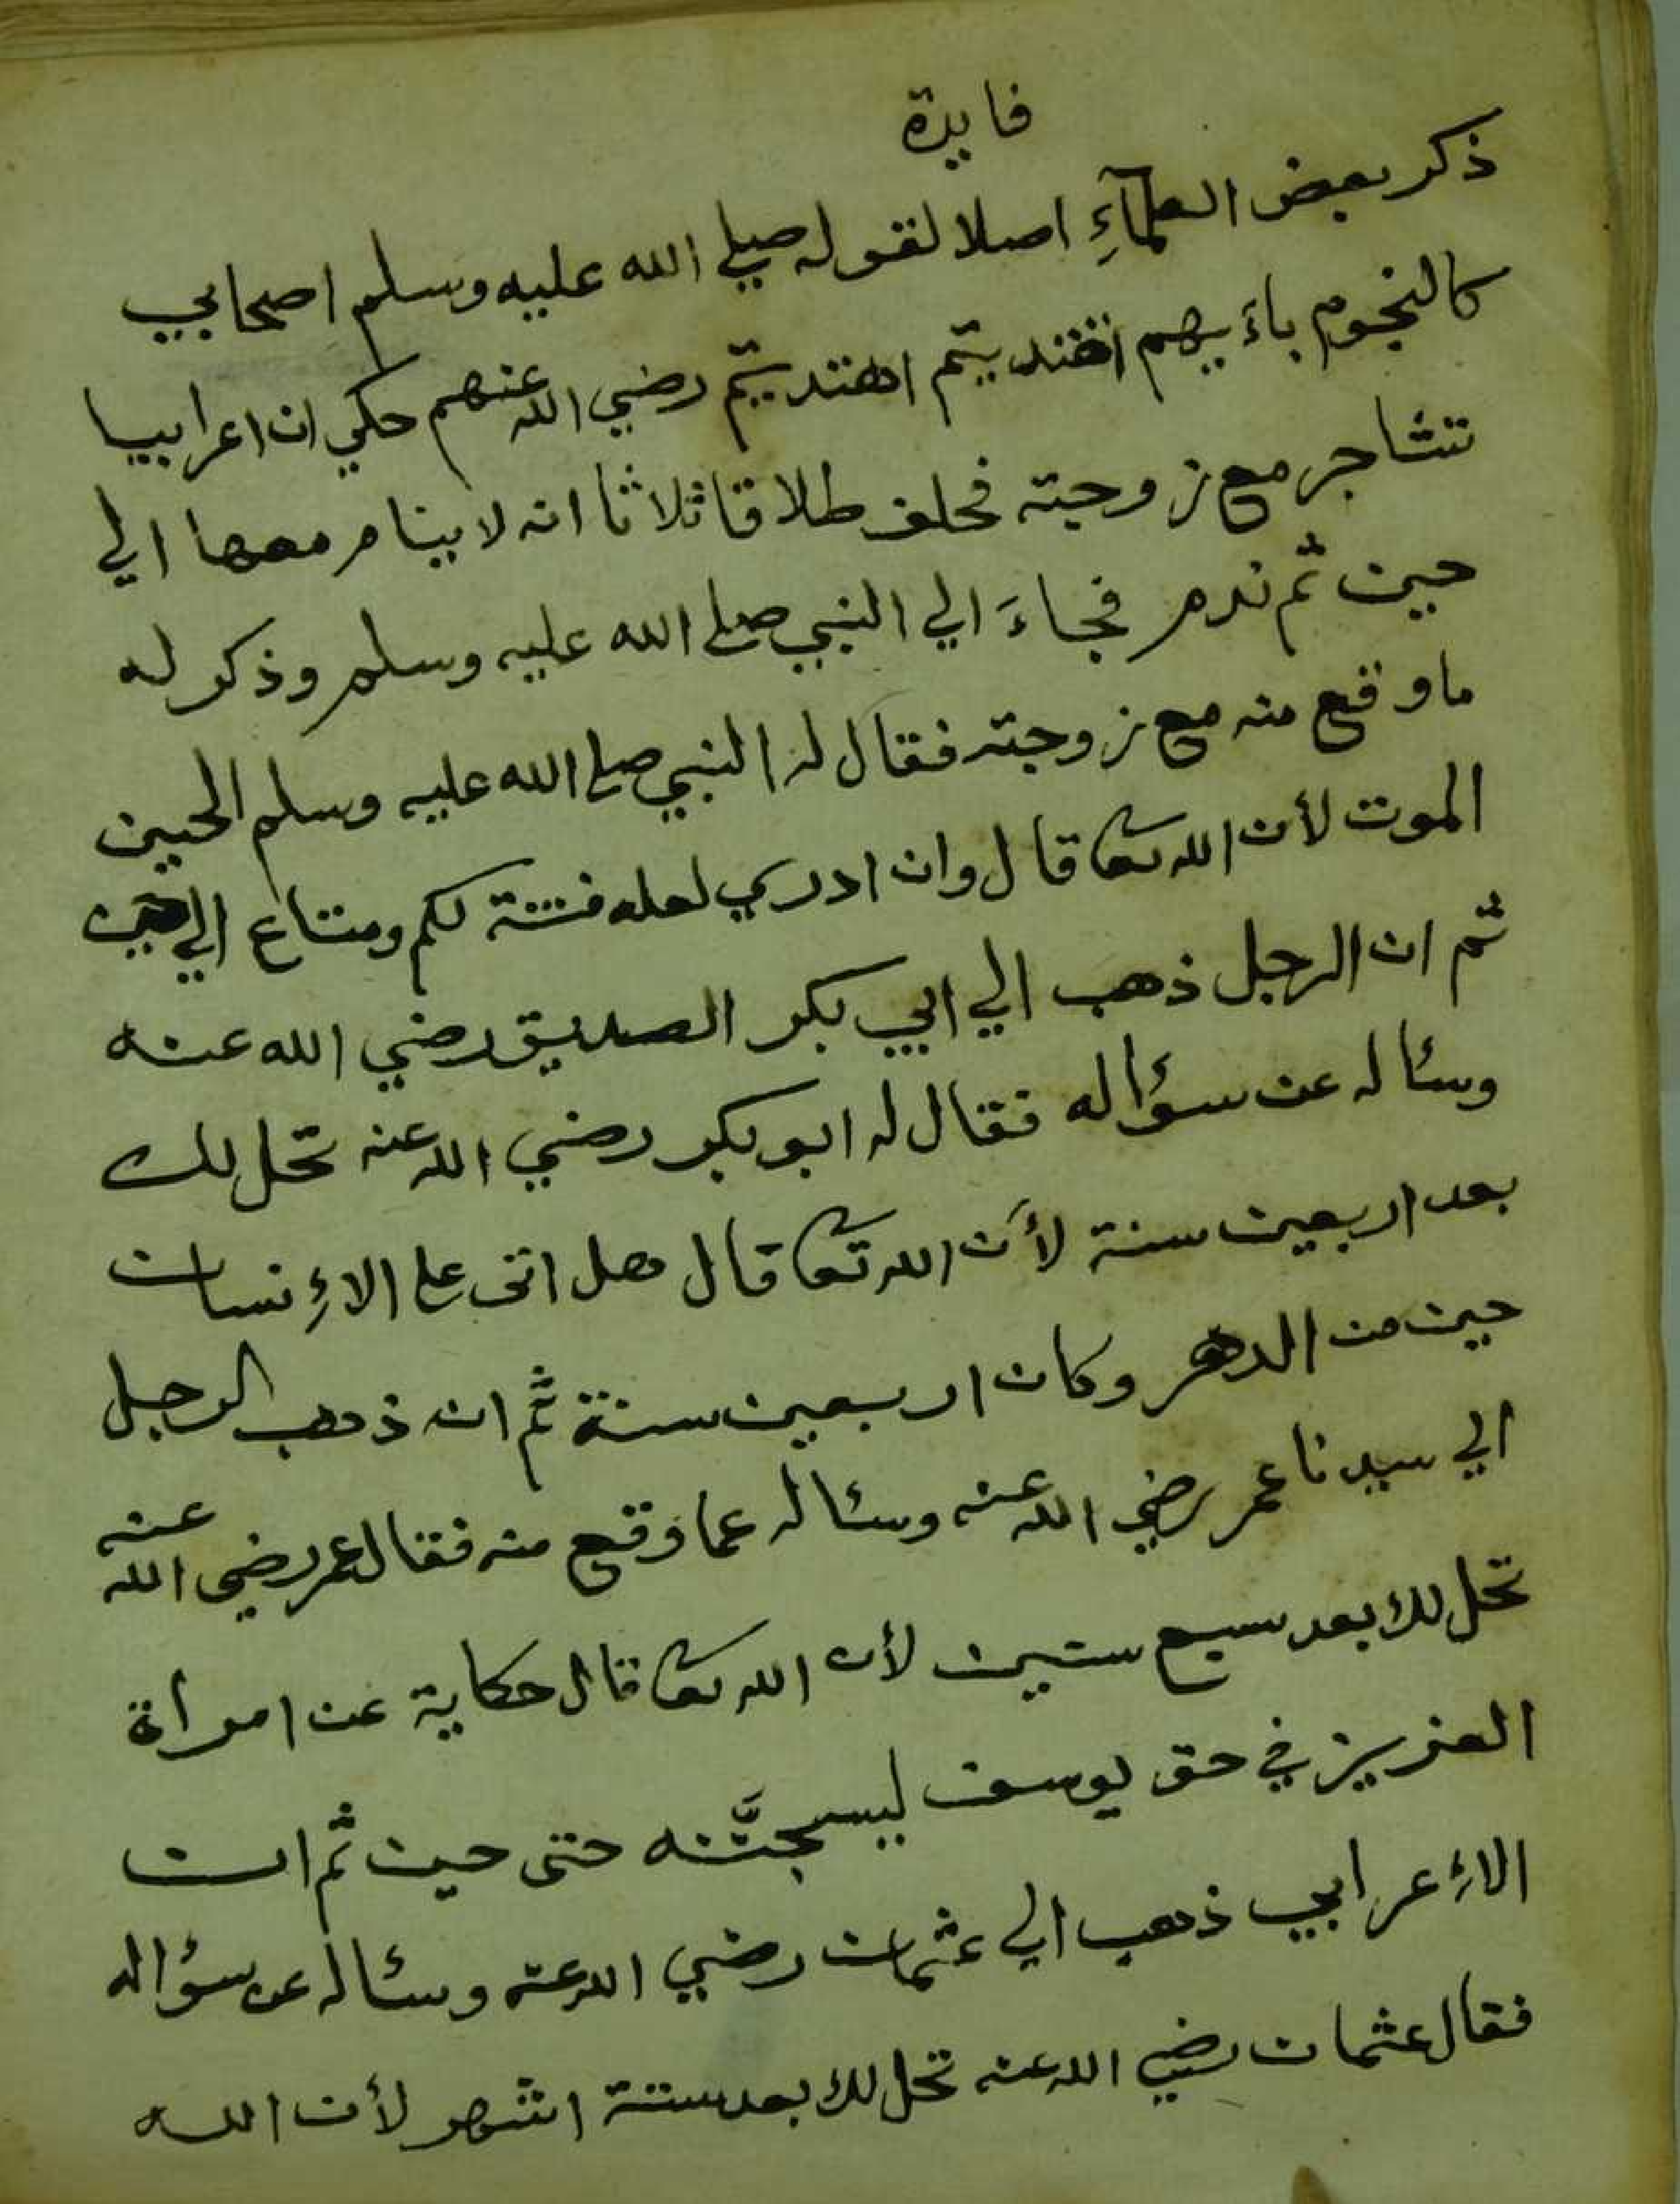 فايدة
ذكر بعض العلمآءِ اصلا لقوله صلي الله عليه وسلم اصحابي
كالنجوم باءَيهم اقتديتم اهتديتم رضي الله عنهم حكي ان اعرابيا
تشاجر مع زوجته فحلف طلاقا ثلاثا انه لا ينام معها الي
حين ثم ندم فجاءَ الي النبي صلي الله عليه وسلم وذكر له
ما وقع منه مع زوجته فقال له النبي صلي الله عليه وسلم الحين
الموت لأن الله تعا قال وان ادري لعله فتنة لكم ومتاع الي حين
ثم ان الرجل ذهب الي ابي بكر الصديق رضي الله عنه
وسئاله عن سؤاله فقال له ابو بكر رضي الله عنه تحل لك
بعد اربعين سنة لأن الله تعا قال هل اتى على الاءِنسان
حين من الدهر وكان اربعين سنة ثم انه ذهب الرجل
الي سيدنا عمر رضي الله عنه وسئاله عما وقع منه فقال عمر رضي الله عنه
تحل لك بعد سبع سنين لأن الله تعا قال حكاية عن امرأة
العزيز في حق يوسف ليسجنَّنه حتى حين ثم ان
الاءِعرابي ذهب الي عثمان رضي الله عنه وسئاله عن سؤاله
فقال عثمان رضي الله عنه تحل لك بعد ستة اشهر لأن الله